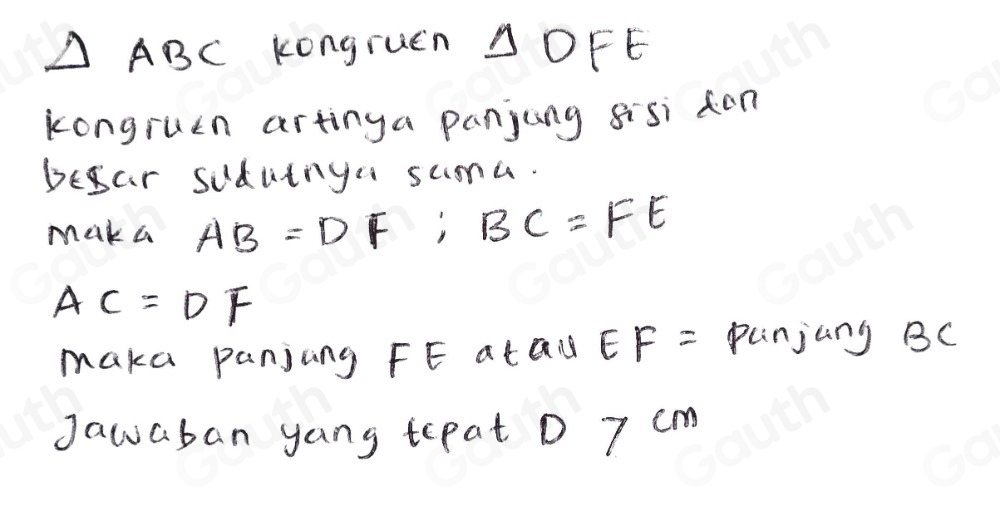 Δ ABC kongruen Δ DFE
kongruen artinya panjang sisi dan
besar sudutnya sama.
maka AB = DF ; BC = FE
AC = DF
maka panjang FE atau EF = panjang BC
Jawaban yang tepat D 7 cm